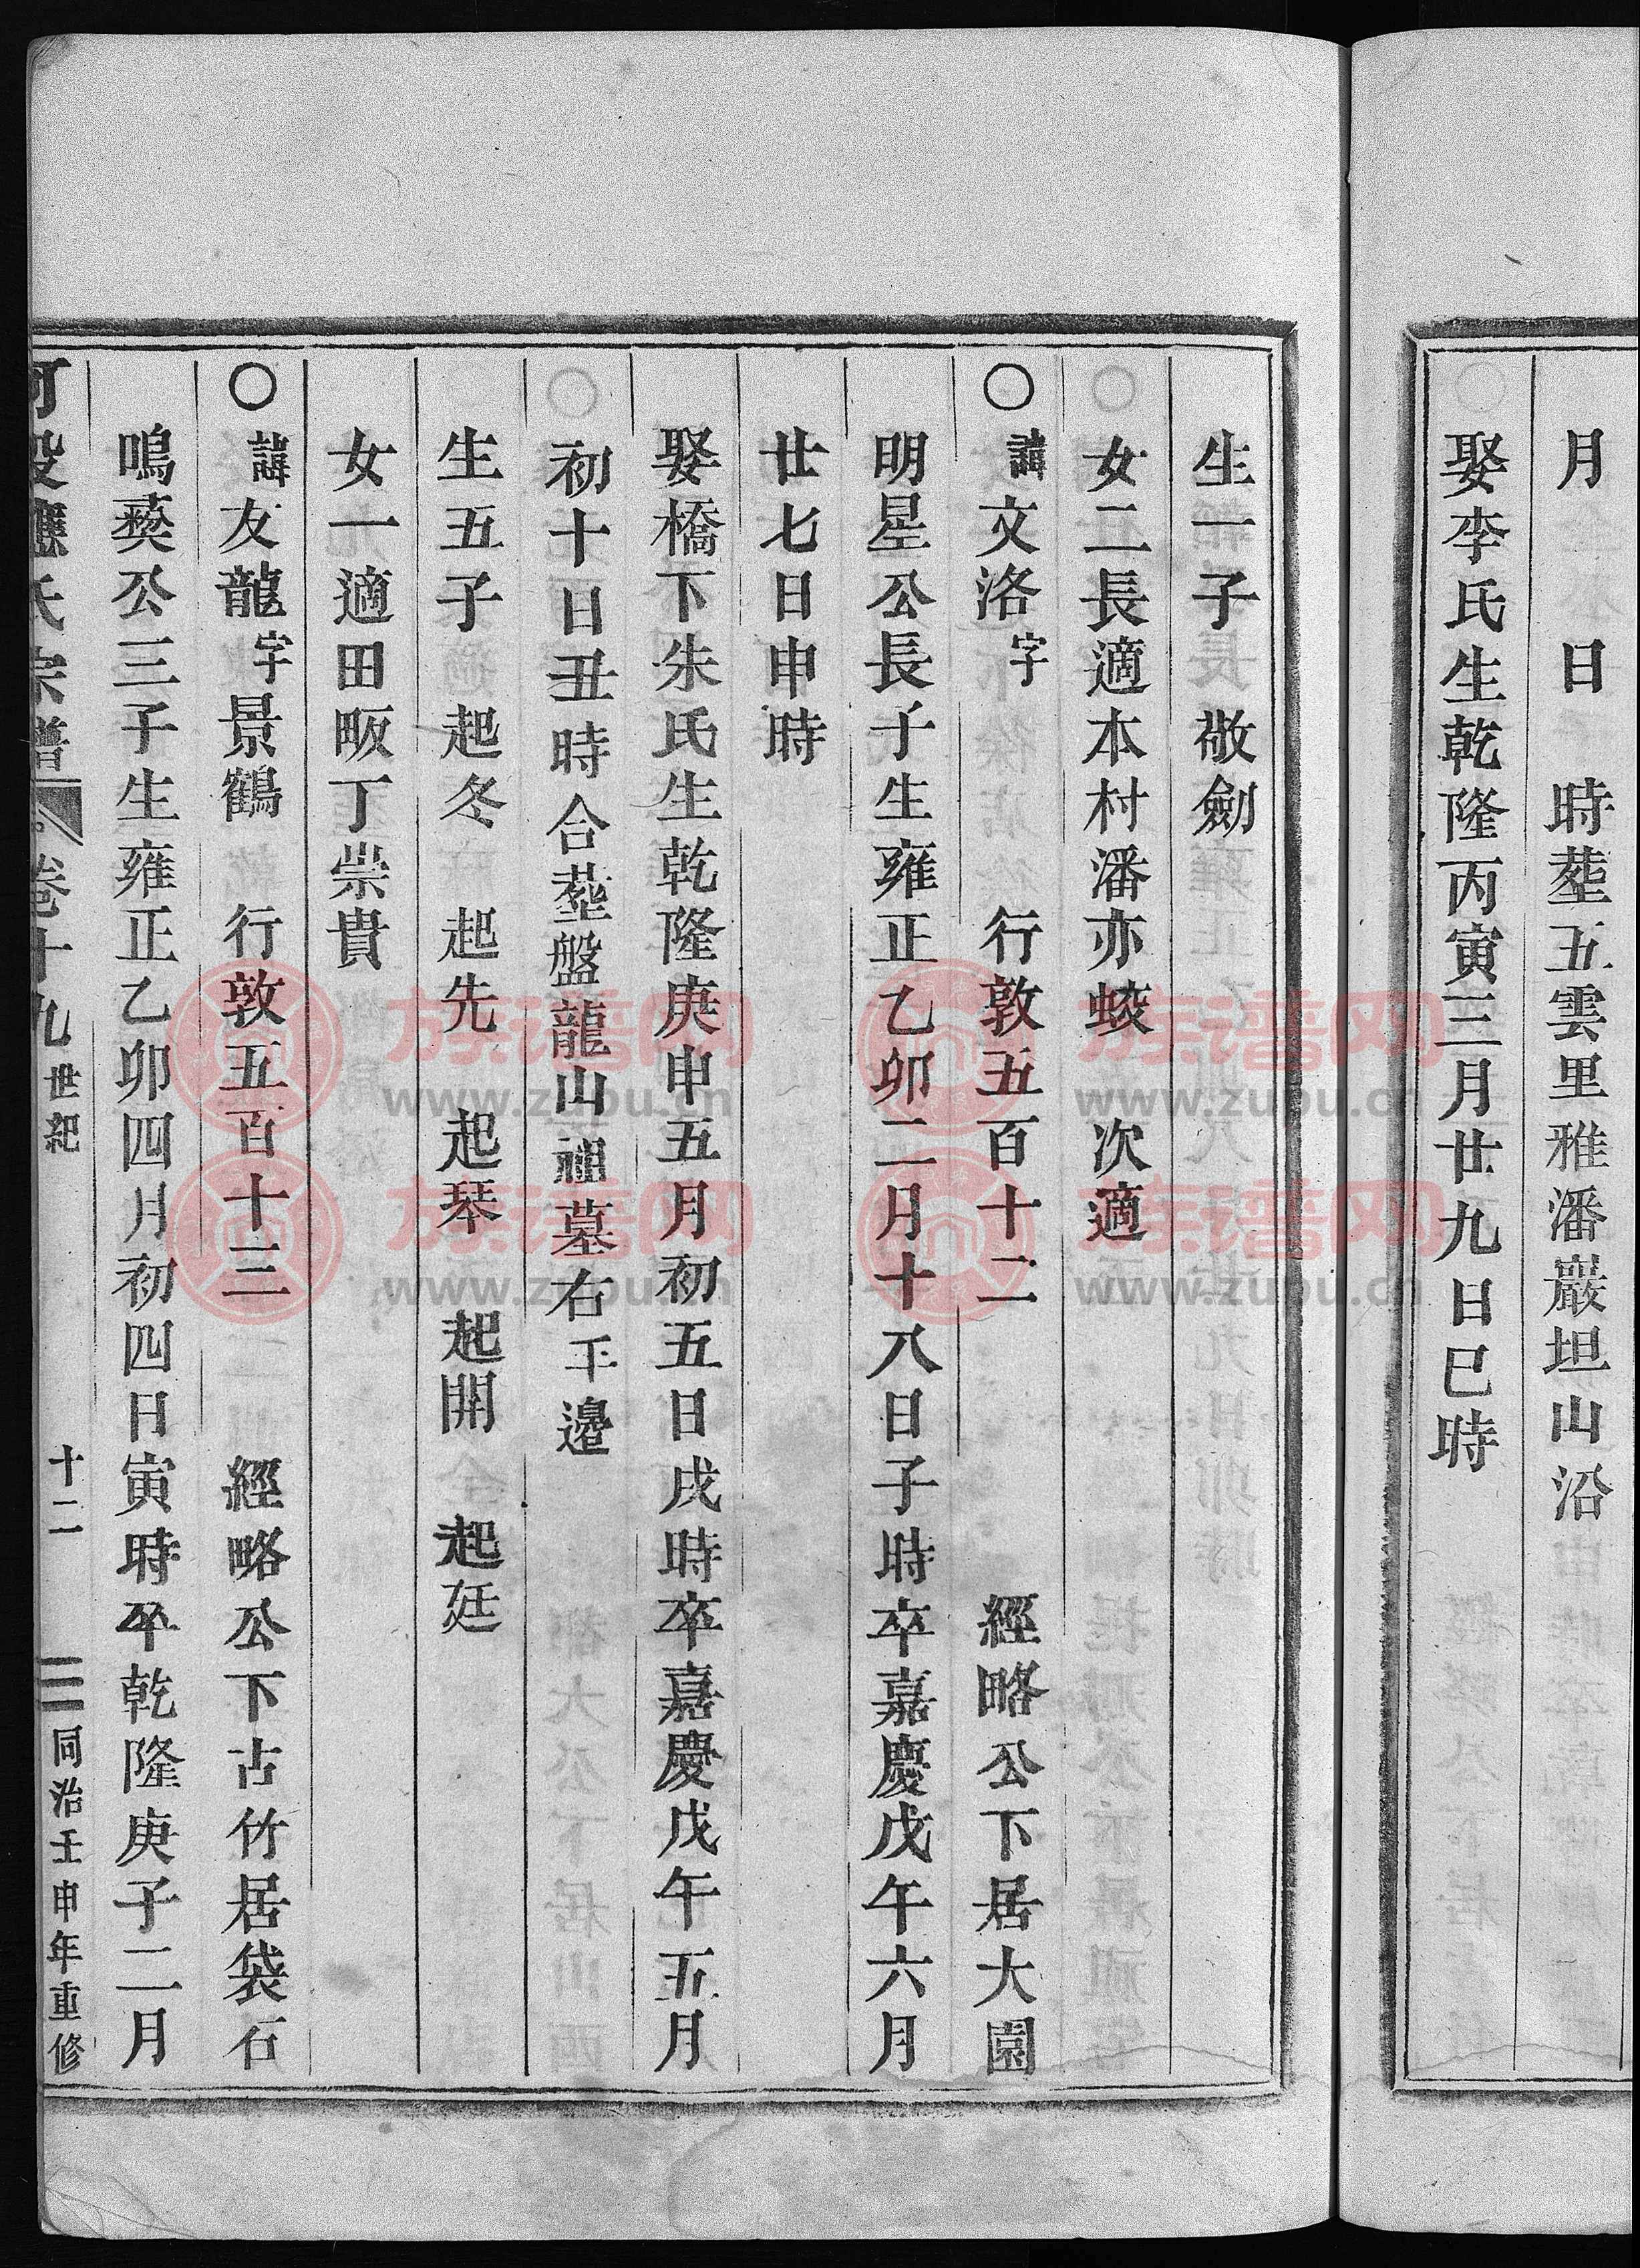 月　日　時塟五雲里雅潘巖坦山沿
娶李氏生乾隆丙寅三月廿九日巳時
生一子　敬劍
女二長適本村潘亦蛟　次適
〇諱文洛字　行敦五百十二　經略公下居大園
明星公長子生雍正乙卯二月十八日子時卒嘉慶戊午六月
廿七日申時
娶橋下朱氏生乾隆庚申五月初五日戌時卒嘉慶戊午五月
初十日丑時合塟盤龍山祖墓右平邊
生五子　起冬　起先　起琴　起開　起廷
女一適田畈丁崇貴
〇諱友龍字景鶴　行敦五百十三　經略公下古竹居袋石
鳴爕公三子生雍正乙卯四月初四日寅時卒乾隆庚子二月
河叚應氏宗譜　卷十九　世紀　十二　同治壬申年重修
族谱网
www.zupu.cn
族谱网
www.zupu.cn
族谱网
www.zupu.cn
族谱网
www.zupu.cn